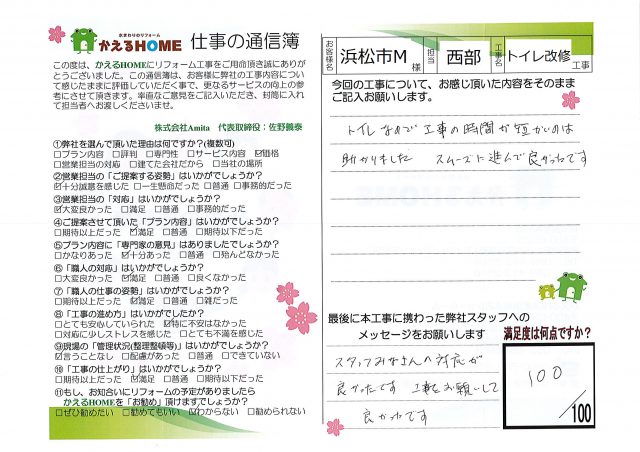 水まわりのリフォーム
かえるHOME 仕事の通信簿
この度は、かえるHOMEにリフォーム工事をご用命頂き誠にありが
とうございました。この通信簿は、お客様に弊社の工事内容につい
て感じたままに評価していただく事で、更なるサービスの向上の参
考にさせて頂きます。率直なご意見をご記入いただき、封筒に入れ
て担当者へお渡しくださいませ。
株式会社Amita 代表取締役：佐野義泰
①弊社を選んで頂いた理由は何ですか?(複数可)
□プラン内容 □評判 □専門性 □サービス内容 ☑価格
□営業担当の対応 □建てた会社だから □当社の場所
②営業担当の「ご提案する姿勢」はいかがでしょうか?
☑十分誠意を感じた □一生懸命だった □普通 □事務的だった
③営業担当の「対応」はいかがでしょうか?
☑大変良かった □満足 □普通 □事務的だった
④ご提案させて頂いた「プラン内容」はいかがでしょうか?
□期待以上だった ☑満足 □普通 □期待以下だった
⑤プラン内容に「専門家の意見」はありましたでしょうか?
□かなりあった ☑十分あった □普通 □殆んどなかった
⑥「職人の対応」はいかがでしょうか?
□大変良かった ☑満足 □普通 □良くなかった
⑦「職人の仕事の姿勢」はいかがでしょうか?
□期待以上だった ☑満足 □普通 □雑だった
⑧「工事の進め方」はいかがでしたか?
□とても安心していられた ☑特に不安はなかった
□対応に少しストレスを感じた □とても不満を感じた
⑨現場の「管理状況(整理整頓等)」はいかがでしょうか?
☑言うことなし □配慮があった □普通 □できていない
⑩「工事の仕上がり」はいかがでしょうか?
□期待以上だった ☑満足 □普通 □期待以下だった
⑪もし、お知合いにリフォームの予定がありましたら
かえるHOMEを「お勧め」頂けますでしょうか?
□ぜひ勧めたい □勧めてもいい ☑わからない □勧められない
お客様名 浜松市M 様 担当 西部 工事名 トイレ改修 工事
今回の工事について、お感じ頂いた内容をそのまま
ご記入お願いします。
トイレなので工事の時間が短かいのは
助かりました スムーズに進んで良かったです
最後に本工事に携わった弊社スタッフへの
メッセージをお願いします
スタッフみなさんの対応が
良かったです 工事をお願いして
良かったです
満足度は何点ですか?
100
/100